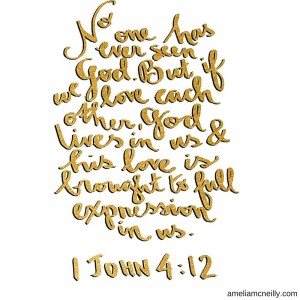 No one has
ever seen
God. But if
we love each
other, God
lives in us &
his love is
brought to full
expression
in us.
1 JOHN 4:12
ameliamcneilly.com